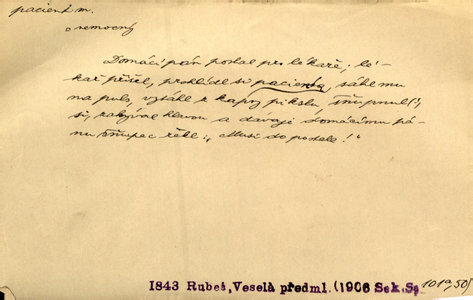 pacient m.
nemocný
Domácí pán poslal pro lékaře; lé-
kař přišel, prohlídl si pacienta, sáhl mu
na puls, vytáhl z kapsy pikslu, šňupnul (!)
si, zakýval hlavou a dávaje domácímu pá-
nu šňupec řekl: „Musí do postele!“
1843 Rubeš, Veselá předml. (1906 Sek. Sp.
101 9, 50)